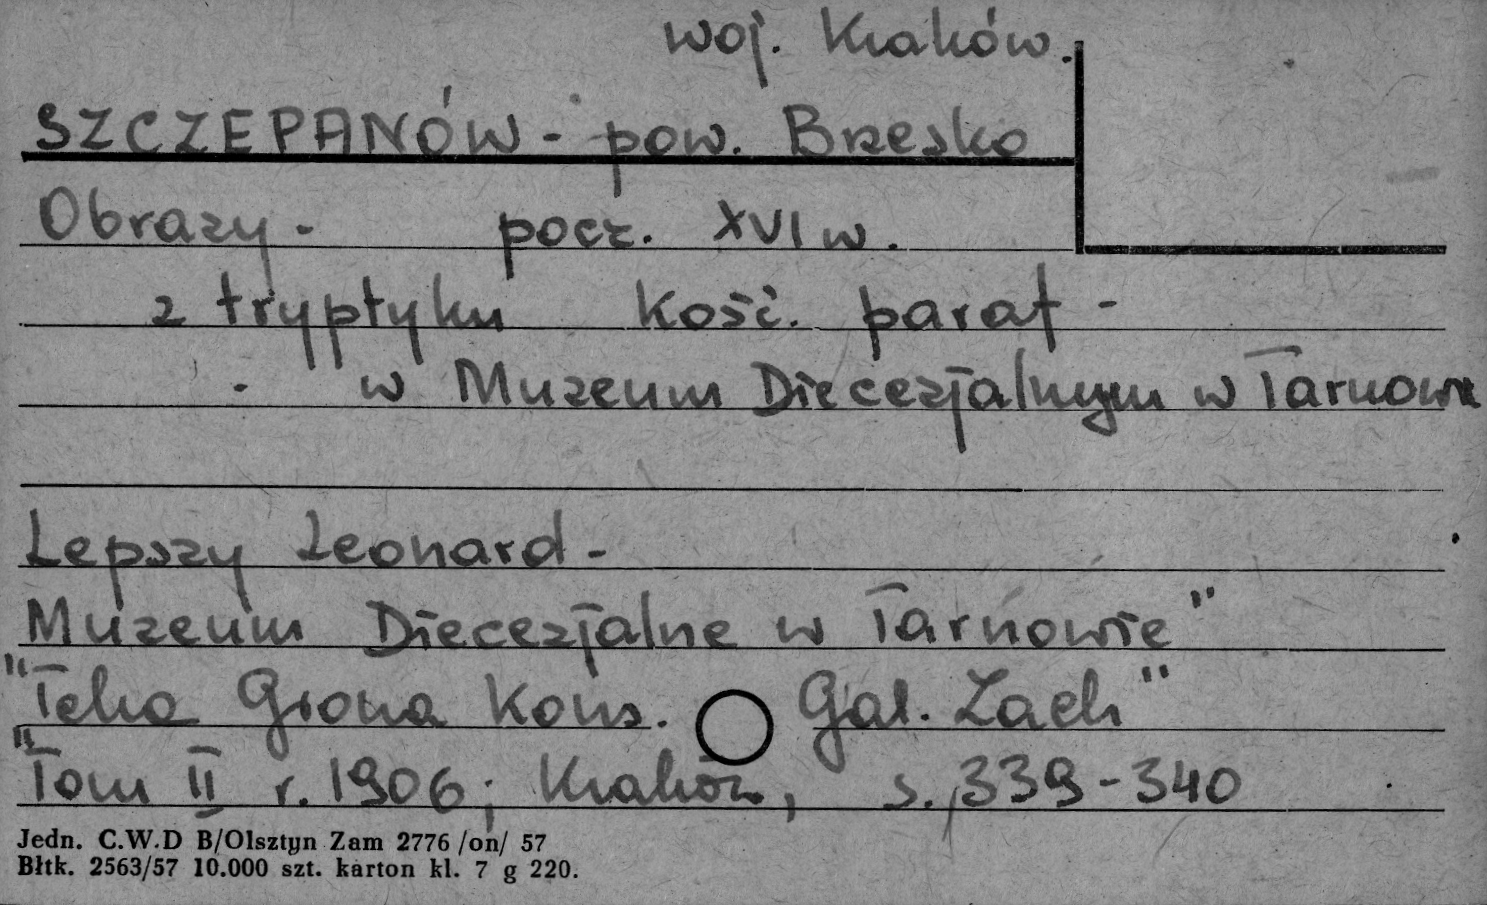 woj. Kraków.
SZCZEPANÓW - pow. Brzesko
Obrazy - pocz. XVI w.
z tryptyku Kość. paraf -
w Muzeum Diecezjalnym w Tarnowie
Lepszy Leonard -
Muzeum Diecezjalne w Tarnowie"
"Teka Grona Kons. Gal. Zach"
"Tom II r. 1906; Kraków, s. 339-340
Jedn. C.W.D B/Olsztyn Zam 2776 /on/ 57
Błtk. 2563/57 10.000 szt. karton kl. 7 g 220.